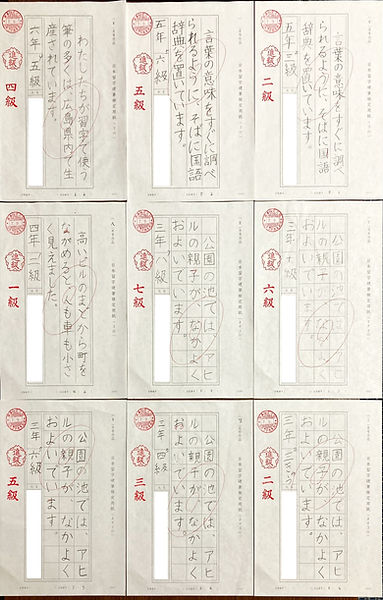 言葉の意味をすぐに調べ
られるように、そばに国語
辞典を置いています。
五年 三級
進級
二級
言葉の意味をすぐに調べ
られるように、そばに国語
辞典を置いています。
五年 六級
進級
五級
わたしたちが習字で使う
筆の多くは、広島県内で生
産されています。
六年 五級
進級
四級
公園の池では、アヒ
ルの親子が、なかよく
およいでいます。
三年
進級
六級
公園の池では、アヒ
ルの親子が、なかよく
およいでいます。
三年 八級
進級
七級
高いビルのまどから町を
ながめると、人も車も小さ
く見えました。
四年 二級
進級
一級
公園の池では、アヒ
ルの親子が、なかよく
およいでいます。
三年
進級
二級
公園の池では、アヒ
ルの親子が、なかよく
およいでいます。
三年 四級
進級
三級
公園の池では、アヒ
ルの親子が、なかよく
およいでいます。
三年 六級
進級
五級